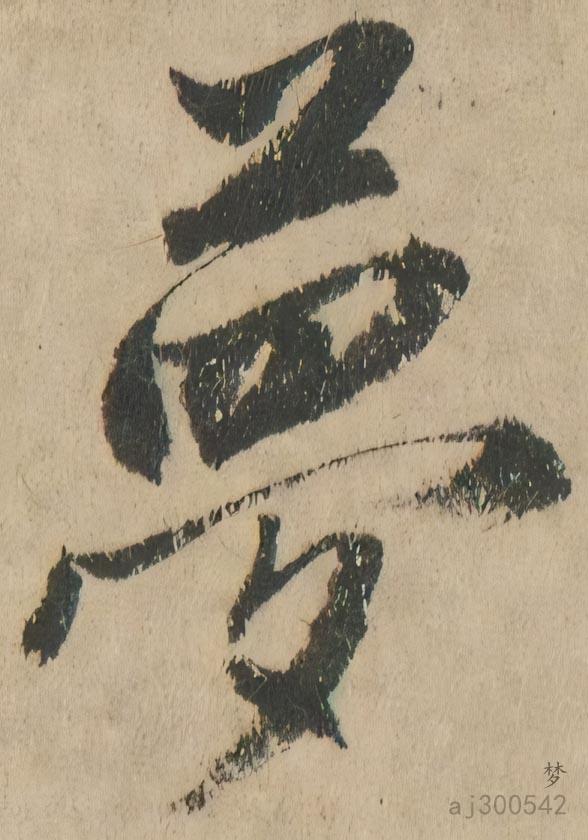 夢
梦
aj300542